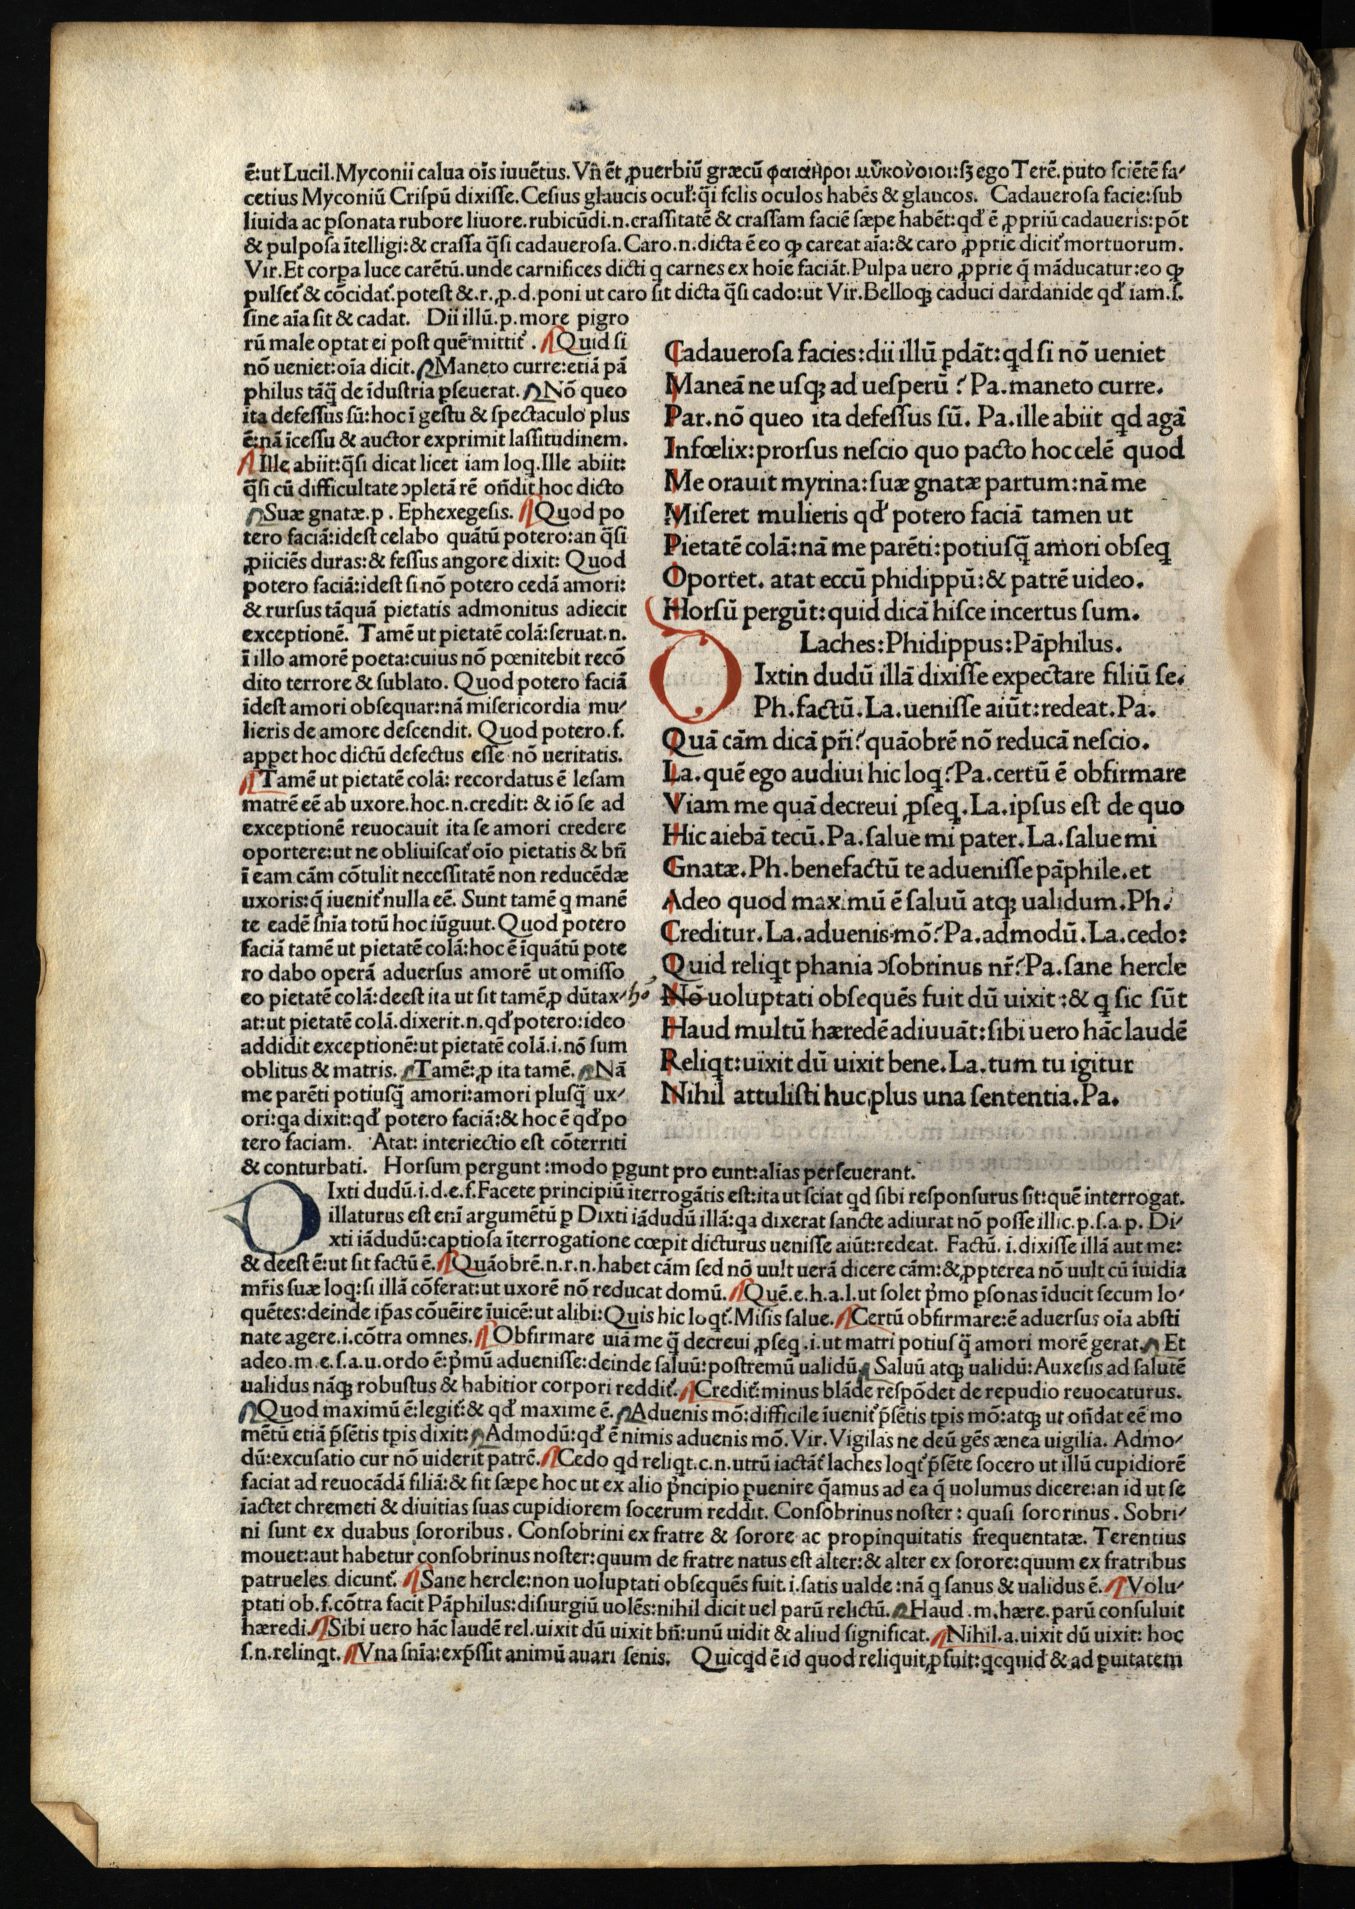 ē:ut Lucil.Myconii calua oīs iuuētus.Vn̄ ēt ꝓuerbiū græcū φαιακροι μυκονοιοι:sꝫ ego Terē.puto sciētē fa-
cetius Myconiū Crispū dixisse.Cesius glaucis oculꝭ:q̄i felis oculos habēs & glaucos. Cadauerosa facie:sub
liuida ac ꝑsonata rubore liuore.rubicūdi.n.crassitatē & crassam faciē sæpe habēt:qđ ē ꝓpriū cadaueris:pōt
& pulposa ītelligi:& crassa q̄si cadauerosa.Caro.n.dicta ē eo ꝙ careat aīa:& caro ꝓprie dicit᷑ mortuorum.
Vir.Et corꝑa luce carētū.unde carnifices dicti q carnes ex hoīe faciāt.Pulpa uero ꝓprie q̄ māducatur:eo ꝙ
pulset᷑ & cōcidat᷑.potest &.r.ꝓ.d.poni ut caro sit dicta q̄si cado:ut Vir.Belloqꝫ caduci dardanide qđ iam.s̄.
sine aīa sit & cadat. Dii illū.p.more pigro
rū male optat ei post quē mittit᷑. Quid si
nō ueniet:oīa dicit. Maneto curre:etiā pā
philus tāq̄ de īdustria ꝑseuerat. Nō queo
ita defessus sū:hoc ī gestu & spectaculo plus
ē:nā īcessu & auctor exprimit lassitudinem.
Ille abiit:q̄si dicat licet iam loq.Ille abiit:
q̄si cū difficultate ↄpletā rē on̄dit hoc dicto
Suæ gnatæ.p. Ephexegesis. Quod po
tero faciā:idest celabo quātū potero:an q̄si
ꝓiiciēs duras:& fessus angore dixit: Quod
potero faciā:idest si nō potero cedā amori:
& rursus tāquā pietatis admonitus adiecit
exceptionē. Tamē ut pietatē colā:seruat.n.
ī illo amorē poeta:cuius nō pœnitebit recō
dito terrore & sublato. Quod potero faciā
idest amori obsequar:nā misericordia mu-
lieris de amore descendit. Quod potero.f.
apꝑet hoc dictū defectus esse nō ueritatis.
Tamē ut pietatē colā: recordatus ē lesam
matrē eē ab uxore.hoc.n.credit: & iō se ad
exceptionē reuocauit ita se amori credere
oportere:ut ne obliuiscat᷑ oīo pietatis & bn̄
ī eam cām cōtulit necessitatē non reducēdæ
uxoris:q̄ iuenit᷑ nulla eē. Sunt tamē q manē
te eadē sn̄ia totū hoc iūguut.Quod potero
faciā tamē ut pietatē colā:hoc ē īquātū pote
ro dabo operā aduersus amorē ut omisso
eo pietatē colā:deest ita ut sit tamē ꝓ dūtax-
at:ut pietatē colā.dixerit.n.qđ potero:ideo
addidit exceptionē:ut pietatē colā.i.nō sum
oblitus & matris. Tamē:ꝓ ita tamē. Nā
me parēti potiusq̄ amori:amori plusq̄ ux-
ori:qa dixit:qđ potero faciā:& hoc ē qđ po
tero faciam. Atat: interiectio est cōterriti
& conturbati. Horsum pergunt:modo ꝑgunt pro eunt:alias perseuerant.
Cadauerosa facies:dii illū ꝑdāt:qđ si nō ueniet
Maneā ne usqꝫ ad uesperū? Pa.maneto curre.
Par.nō queo ita defessus sū. Pa.ille abiit qđ agā
Infœlix:prorsus nescio quo pacto hoc celē quod
Me orauit myrina:suæ gnatæ partum:nā me
Miseret mulieris qđ potero faciā tamen ut
Pietatē colā:nā me parēti:potiusq̄ amori obseq
Oportet. atat eccū phidippū:& patrē uideo.
Horsū pergūt:quid dicā hisce incertus sum.
Laches:Phidippus:Pāphilus.
DIxtin dudū illā dixisse expectare filiū se.
Ph.factū.La.uenisse aiūt:redeat.Pa.
Quā cām dicā pr̄i?quāobrē nō reducā nescio.
La.quē ego audiui hic loq?Pa.certū ē obfirmare
Viam me quā decreui ꝓseq.La.ipsus est de quo
Hic aiebā tecū.Pa.salue mi pater.La.salue mi
Gnatæ.Ph.benefactū te aduenisse pāphile.et
Adeo quod maximū ē saluū atqꝫ ualidum.Ph.
Creditur.La.aduenis mō?Pa.admodū.La.cedo:
Quid reliqt phania ↄsobrinus nr̄?Pa.sane hercle
hō Nō uoluptati obsequēs fuit dū uixit:& q sic sūt
Haud multū hæredē adiuuāt:sibi uero hāc laudē
Reliqt:uixit dū uixit bene.La.tum tu igitur
Nihil attulisti huc plus una sententia.Pa.
DIxti dudū.i.d.e.f.Facete principiū iterrogātis est:ita ut sciat qđ sibi responsurus sit:quē interrogat.
illaturus est eni argumētū ꝑ Dixti iādudū illā:qa dixerat sancte adiurat nō posse illic.p.s.a.p. Di-
xti iādudū:captiosa īterrogatione cœpit dicturus uenisse aiūt:redeat. Factū. i.dixisse illā aut me:
& deest ē:ut sit factū ē. Quāobrē.n.r.n.habet cām sed nō uult uerā dicere cām:& ꝓpterea nō uult cū īuidia
mr̄is suæ loq:si illā cōferat:ut uxorē nō reducat domū. Quē.e.h.a.l.ut solet pr̄mo ꝑsonas īducit secum lo-
quētes:deinde ip̄as cōuēire īuicē:ut alibi:Quis hic loqt᷑.Misis salue. Certū obfirmare:ē aduersus oīa absti
nate agere.i.cōtra omnes. Obfirmare uiā me q̄ decreui ꝓseq.i.ut matri potius q̄ amori morē gerat. Et
adeo.m.e.s.a.u.ordo ē:pr̄mū aduenisse:deinde saluū:postremū ualidū. Saluū atqꝫ ualidū:Auxesis ad salutē
ualidus nāqꝫ robustus & habitior corpori reddit᷑. Credit᷑:minus blāde respōdet de repudio reuocaturus.
Quod maximū ē:legit᷑:& qđ maxime ē. Aduenis mō:difficile īuenit᷑ p̄sētis tꝑis mō:atqꝫ ut on̄dat eē mo
mētū etiā p̄sētis tꝑis dixit: Admodū:qđ ē nimis aduenis mō.Vir.Vigilas ne deū gēs ænea uigilia. Admo-
dū:excusatio cur nō uiderit patrē. Cedo qđ reliqt.c.n.utrū iactāt᷑ laches loqt᷑ p̄sēte socero ut illū cupidiorē
faciat ad reuocādā filiā:& sit sæpe hoc ut ex alio pr̄ncipio ꝑuenire q̄amus ad ea q̄ uolumus dicere:an id ut se
īactet chremeti & diuitias suas cupidiorem socerum reddit. Consobrinus noster: quasi sororinus. Sobri-
ni sunt ex duabus sororibus. Consobrini ex fratre & sorore ac propinquitatis frequentatæ. Terentius
mouet:aut habetur consobrinus noster:quum de fratre natus est alter:& alter ex sorore:quum ex fratribus
patrueles dicunt᷑. Sane hercle:non uoluptati obsequēs fuit.i.satis ualde:nā q sanus & ualidus ē. Volu-
ptati ob.f.cōtra facit Pāphilus:disiurgiū uolēs:nihil dicit uel parū relictū. Haud.m.hære.parū consuluit
hæredi. Sibi uero hāc laudē rel.uixit dū uixit bn̄:unū uidit & aliud significat. Nihil.a.uixit dū uixit: hoc
s.n.relinqt. Vna sn̄ia:exp̄ssit animū auari senis. Quicqđ ē id quod reliquit ꝓfuit:qcquid & ad ꝑuitatem